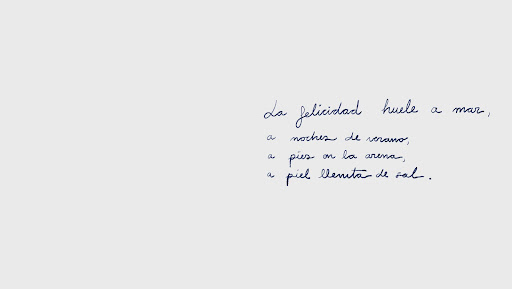 La felicidad huele a mar,
a noches de verano,
a pies en la arena,
a piel llenita de sal.